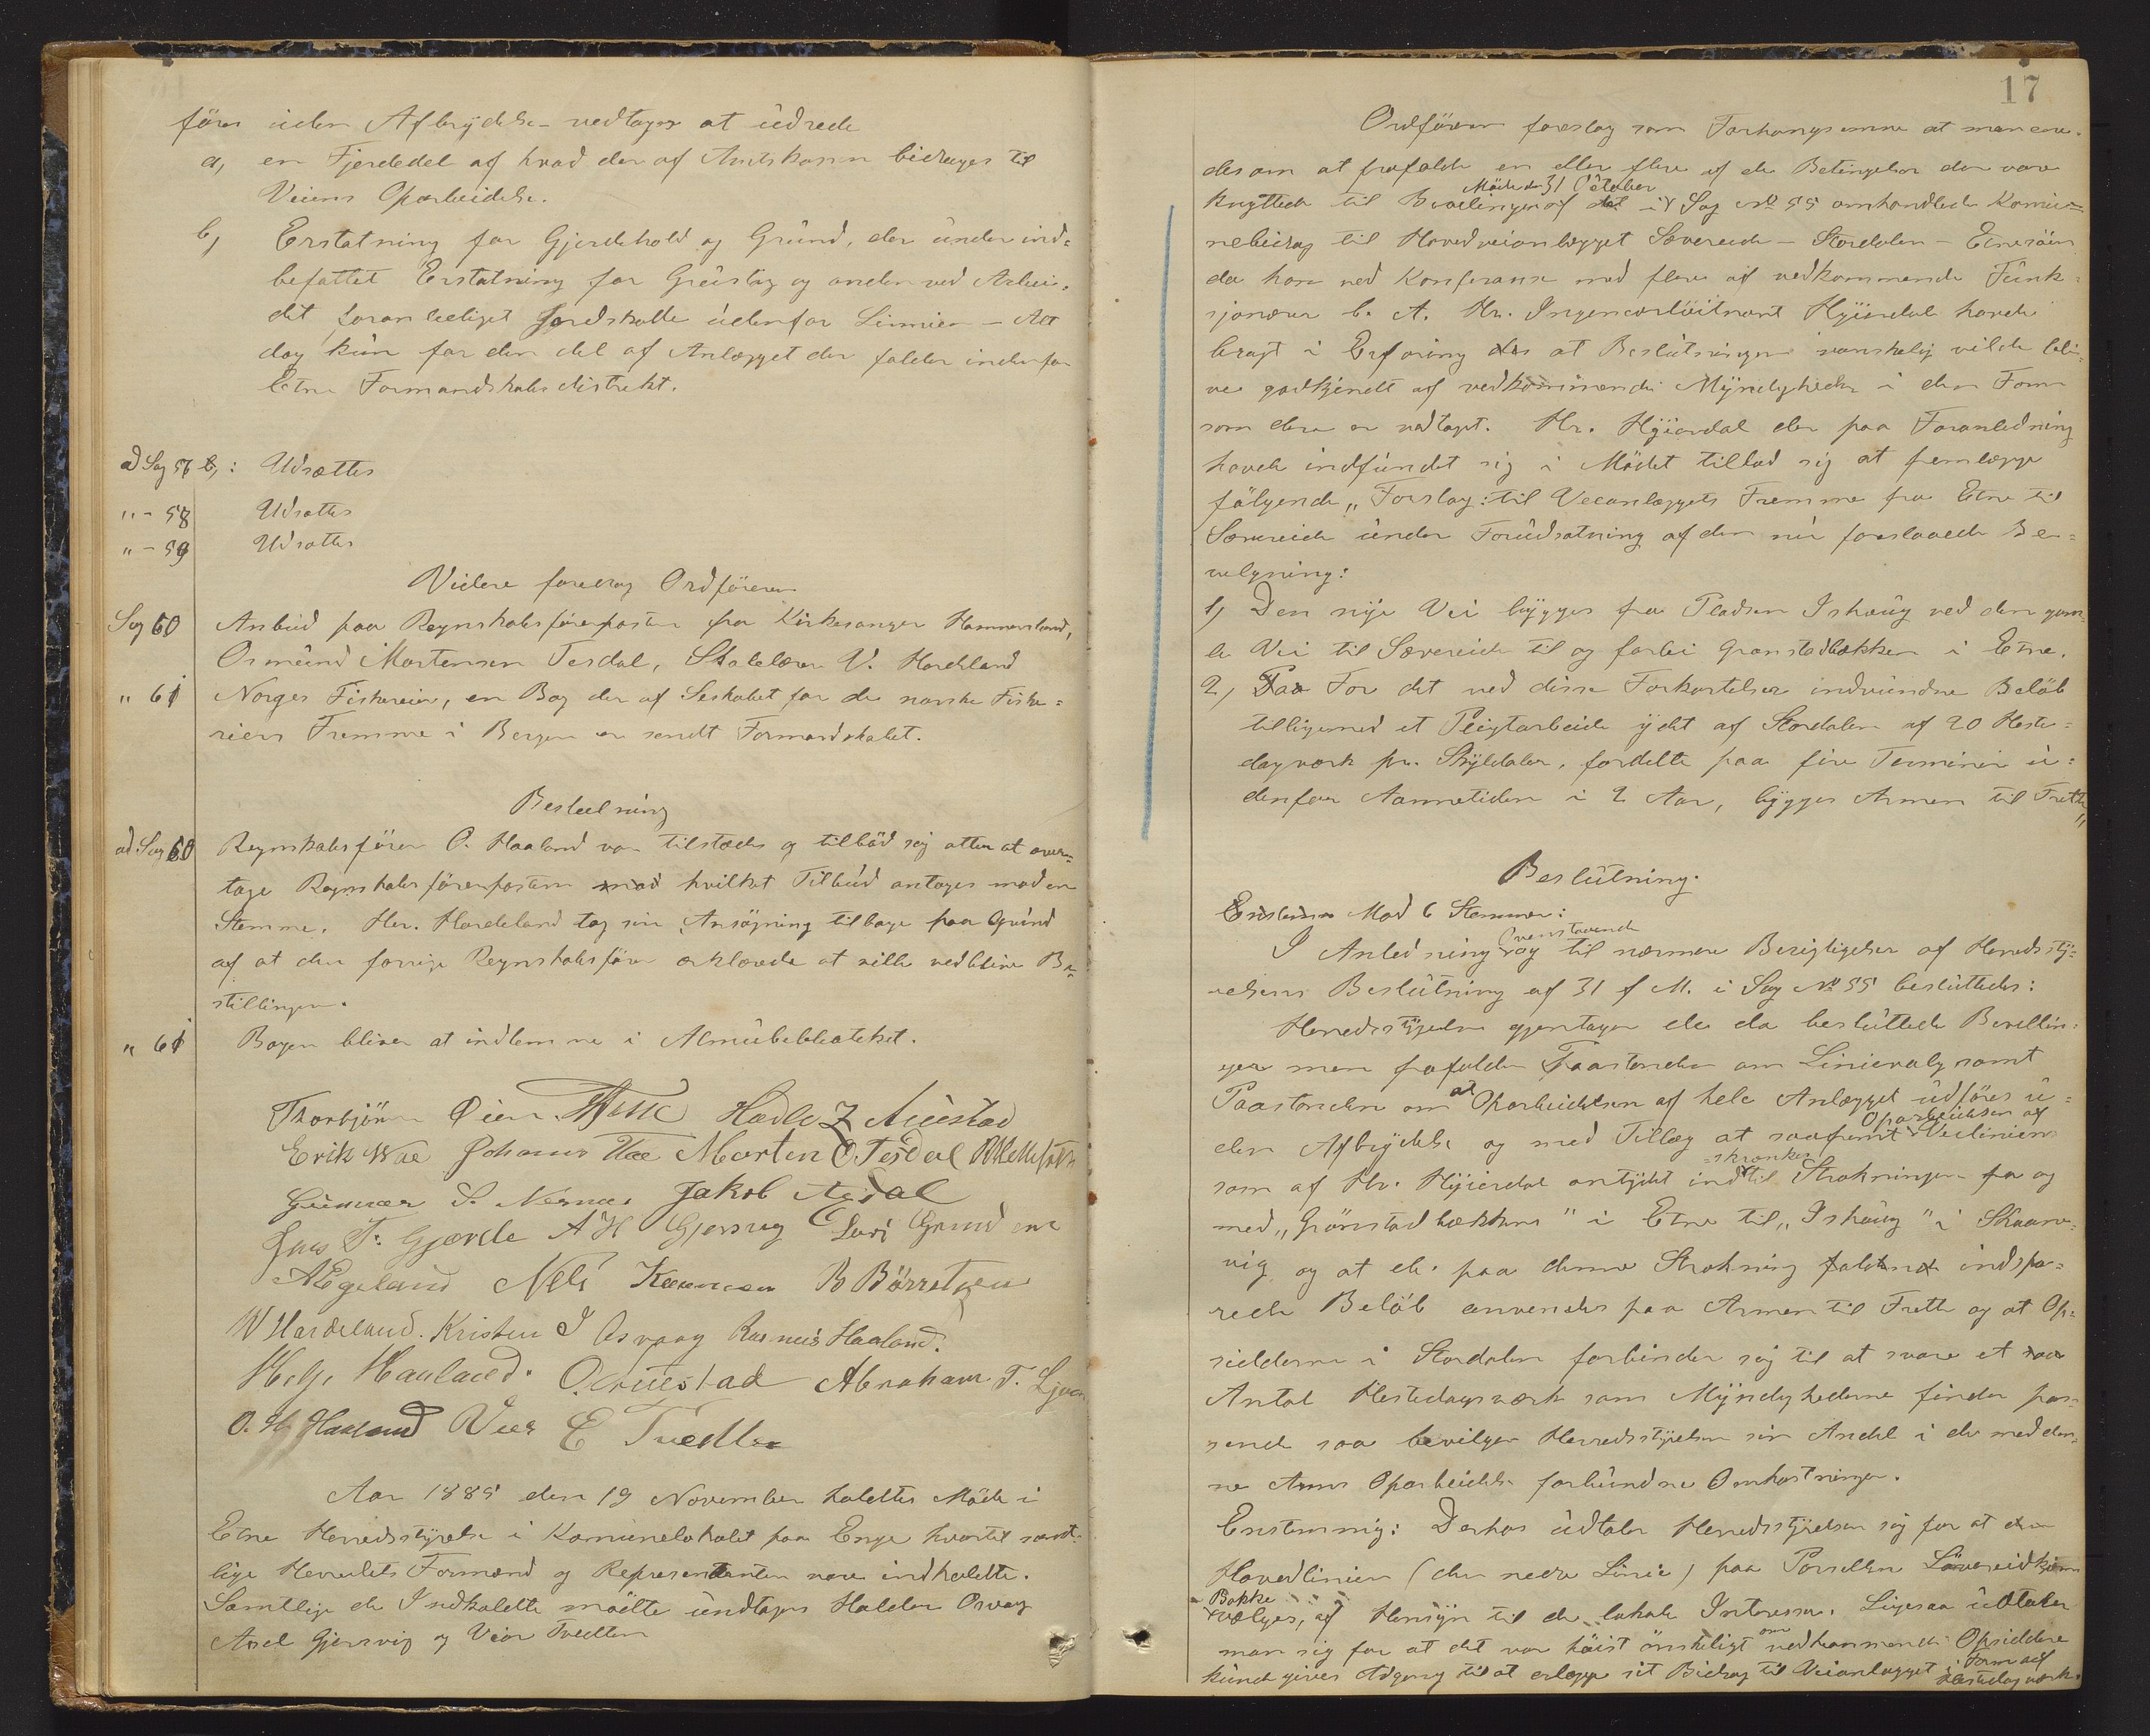 föres uden Afbrydelse – vedtages at udrede
a, en Fjerdedel af hvad der af Amtskassen bidrages til
Veiens Oparbeidelse.
b, Erstatning for Gjerdehold og Grund, der under ind-
befattet Erstatning for Grustag og anden ved Arbei-
det foranlediget Jordskade udenfor Linnien – Alt
dog kun for den del af Anlægget der falder indenfor
Etne Formandskabsdistrikt.
ad Sag 56 b,: Udsættes
" – 58 Udsættes
" – 59 Udsættes
Videre foredrog Ordföreren
Sag 60 Anbud paa Regnskabsförerposten fra Kirkesanger Hammersland,
Osmund Mortensen Tesdal, Skolelærer V. Hardeland
" 61 Norges Fiskerier, en Bog der af Selskabet for de norske Fiske-
riers Fremme i Bergen er sendt Formandskabet.
Beslutning
ad Sag 60 Regnskabsförer O. Haaland var tilstede og tilböd sig atter at over-
tage Regnskabsförerposten hvilket Tilbud antoges mod en
Stemme. Hr. Hardeland tog sin Ansögning tilbage paa Grund
af at den forrige Regnskabsförer erklærede at ville vedblive Be-
stillingen.
" 61 Bogen bliver at indlemme i Almuebibliotheket.
Thorbjörn Öien Hadle Z Austad
Erik Wae Johans Morten O Tesdal
Gunnar S. Nernes Jakob Agdal
Lars T. Gjærde A H Gjersvig Lars Grindene
A Egeland Nels B Börretzen
W Hardeland. Kristen J Osvaag Rasmus Haaland.
Helge Haaland. O. Aaestad Abraham T.
O. H. Haaland E Tvedten
Aar 1885 den 19 November holdtes Möde i
Etne Herredsstyrelse i Komunelokalet paa Enge hvortil samt-
lige Herredets Formænd og Representanter vare indkaldte.
Samtlige de Indkaldte mödte undtagen Halder Osvag
Axel Gjersvig og Vier Tvedten
17
Ordföreren foreslog som Forhandlingsemne at man
des om at frafalde en eller flere af de Betingelser der vare
Möde den 31 October
knyttede til Bevilingen af det i Sag No 55 omhandlede Komu-
nebidrag til Hovedveianlægget Sævereide – Stordalen – Etnesöen
da han ved Konferanse med flere af vedkommende Funk-
sjonærer b. A. Hr. Ingeniörlöitnant Hyierdal havde
bragt i Erfaring at Beslutningen vanskelig vilde bli-
ve godkjendt af vedkommende Myndigheder i den Form
som den er vedtaget. Hr. Hyierdal der paa Foranledning
havde indfundet sig i Mödet tillod sig at fremlægge
fölgende „Forslag: til Veeanlæggets Fremme fra Etne til
Sævereide under Forudsætning af den nu foreslaaede Be-
vilgning:
1, Den nye Vei bygges fra Pladsen Ishaug ved den gam-
le Vei til Sævereide til og forbi Grönstadbækken i Etne.
2, For det ved disse Forkortelser indvundne Belöb
tilligemed et Pligtarbeide ydet af Stordalen af 20 Heste-
dagværk pr. Skyldaler, fordelte paa fire Terminer u-
denfor Aannetiden i 2 Aar, bygges Armen til Frette"
Beslutning.
Mod 6 Stemmer:
I Anledning ovenstaaende og til nærmere Berigtigelse af Herredssty-
relsens Beslutning af 31 f M. i Sag No 55 besluttedes:
Herredsstyrelsen gjentager de da besluttede Bevillin-
ger men frafalder Paastanden om Linievalg samt
Paastanden om at Oparbeidelsen af hele Anlægget udföres u-
den Afbrydelse og med Tillæg at saafremt Oparbeidelsen af Veilinien
som af Hr. Hyierdal antydet indskrænkes til Strækningen fra og
med „Grönstadbækken" i Etne til „Ishaug" i Skaane-
vig og at de paa denne Strækning indspa-
rede Belöb anvendes paa Armen til Frette og at Op-
sidderne i Stordalen forbinder sig til at svare et
Antal Hestedagsværk som Myndighederne finder pas-
sende saa bevilger Herredsstyrelsen sin Andel i de med den-
ne Arms Oparbeidelse forbundne Omkostninger.
Enstemmig: Derhos udtaler Herredsstyrelsen sig for at
Hovedlinien (den nedre Linie) paa Parsellen Sævereid
Bakke vælges, af Hensyn til de lokale Interesser. Ligesaa udtaler
man sig for at det var höist önskeligt om vedkommende Opsiddere
kunde gives Adgang til at erlægge sit Bidrag til Veianlægget i Form af
Hestedagværk.